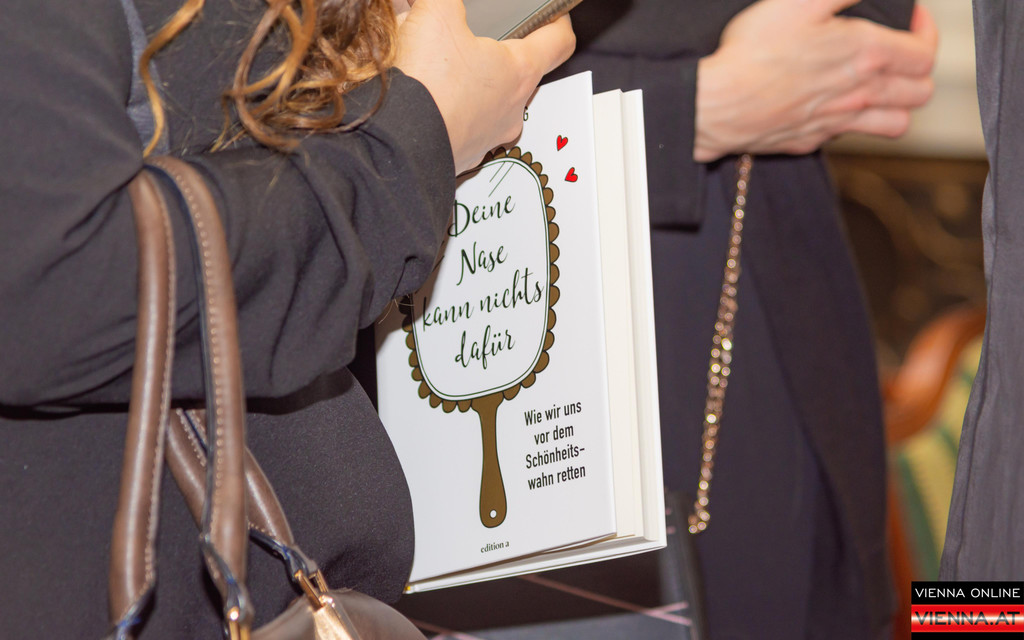 Deine
Nase
kann nichts
dafür
Wie wir uns
vor dem
Schönheits-
wahn retten
edition a
VIENNA ONLINE
VIENNA.AT